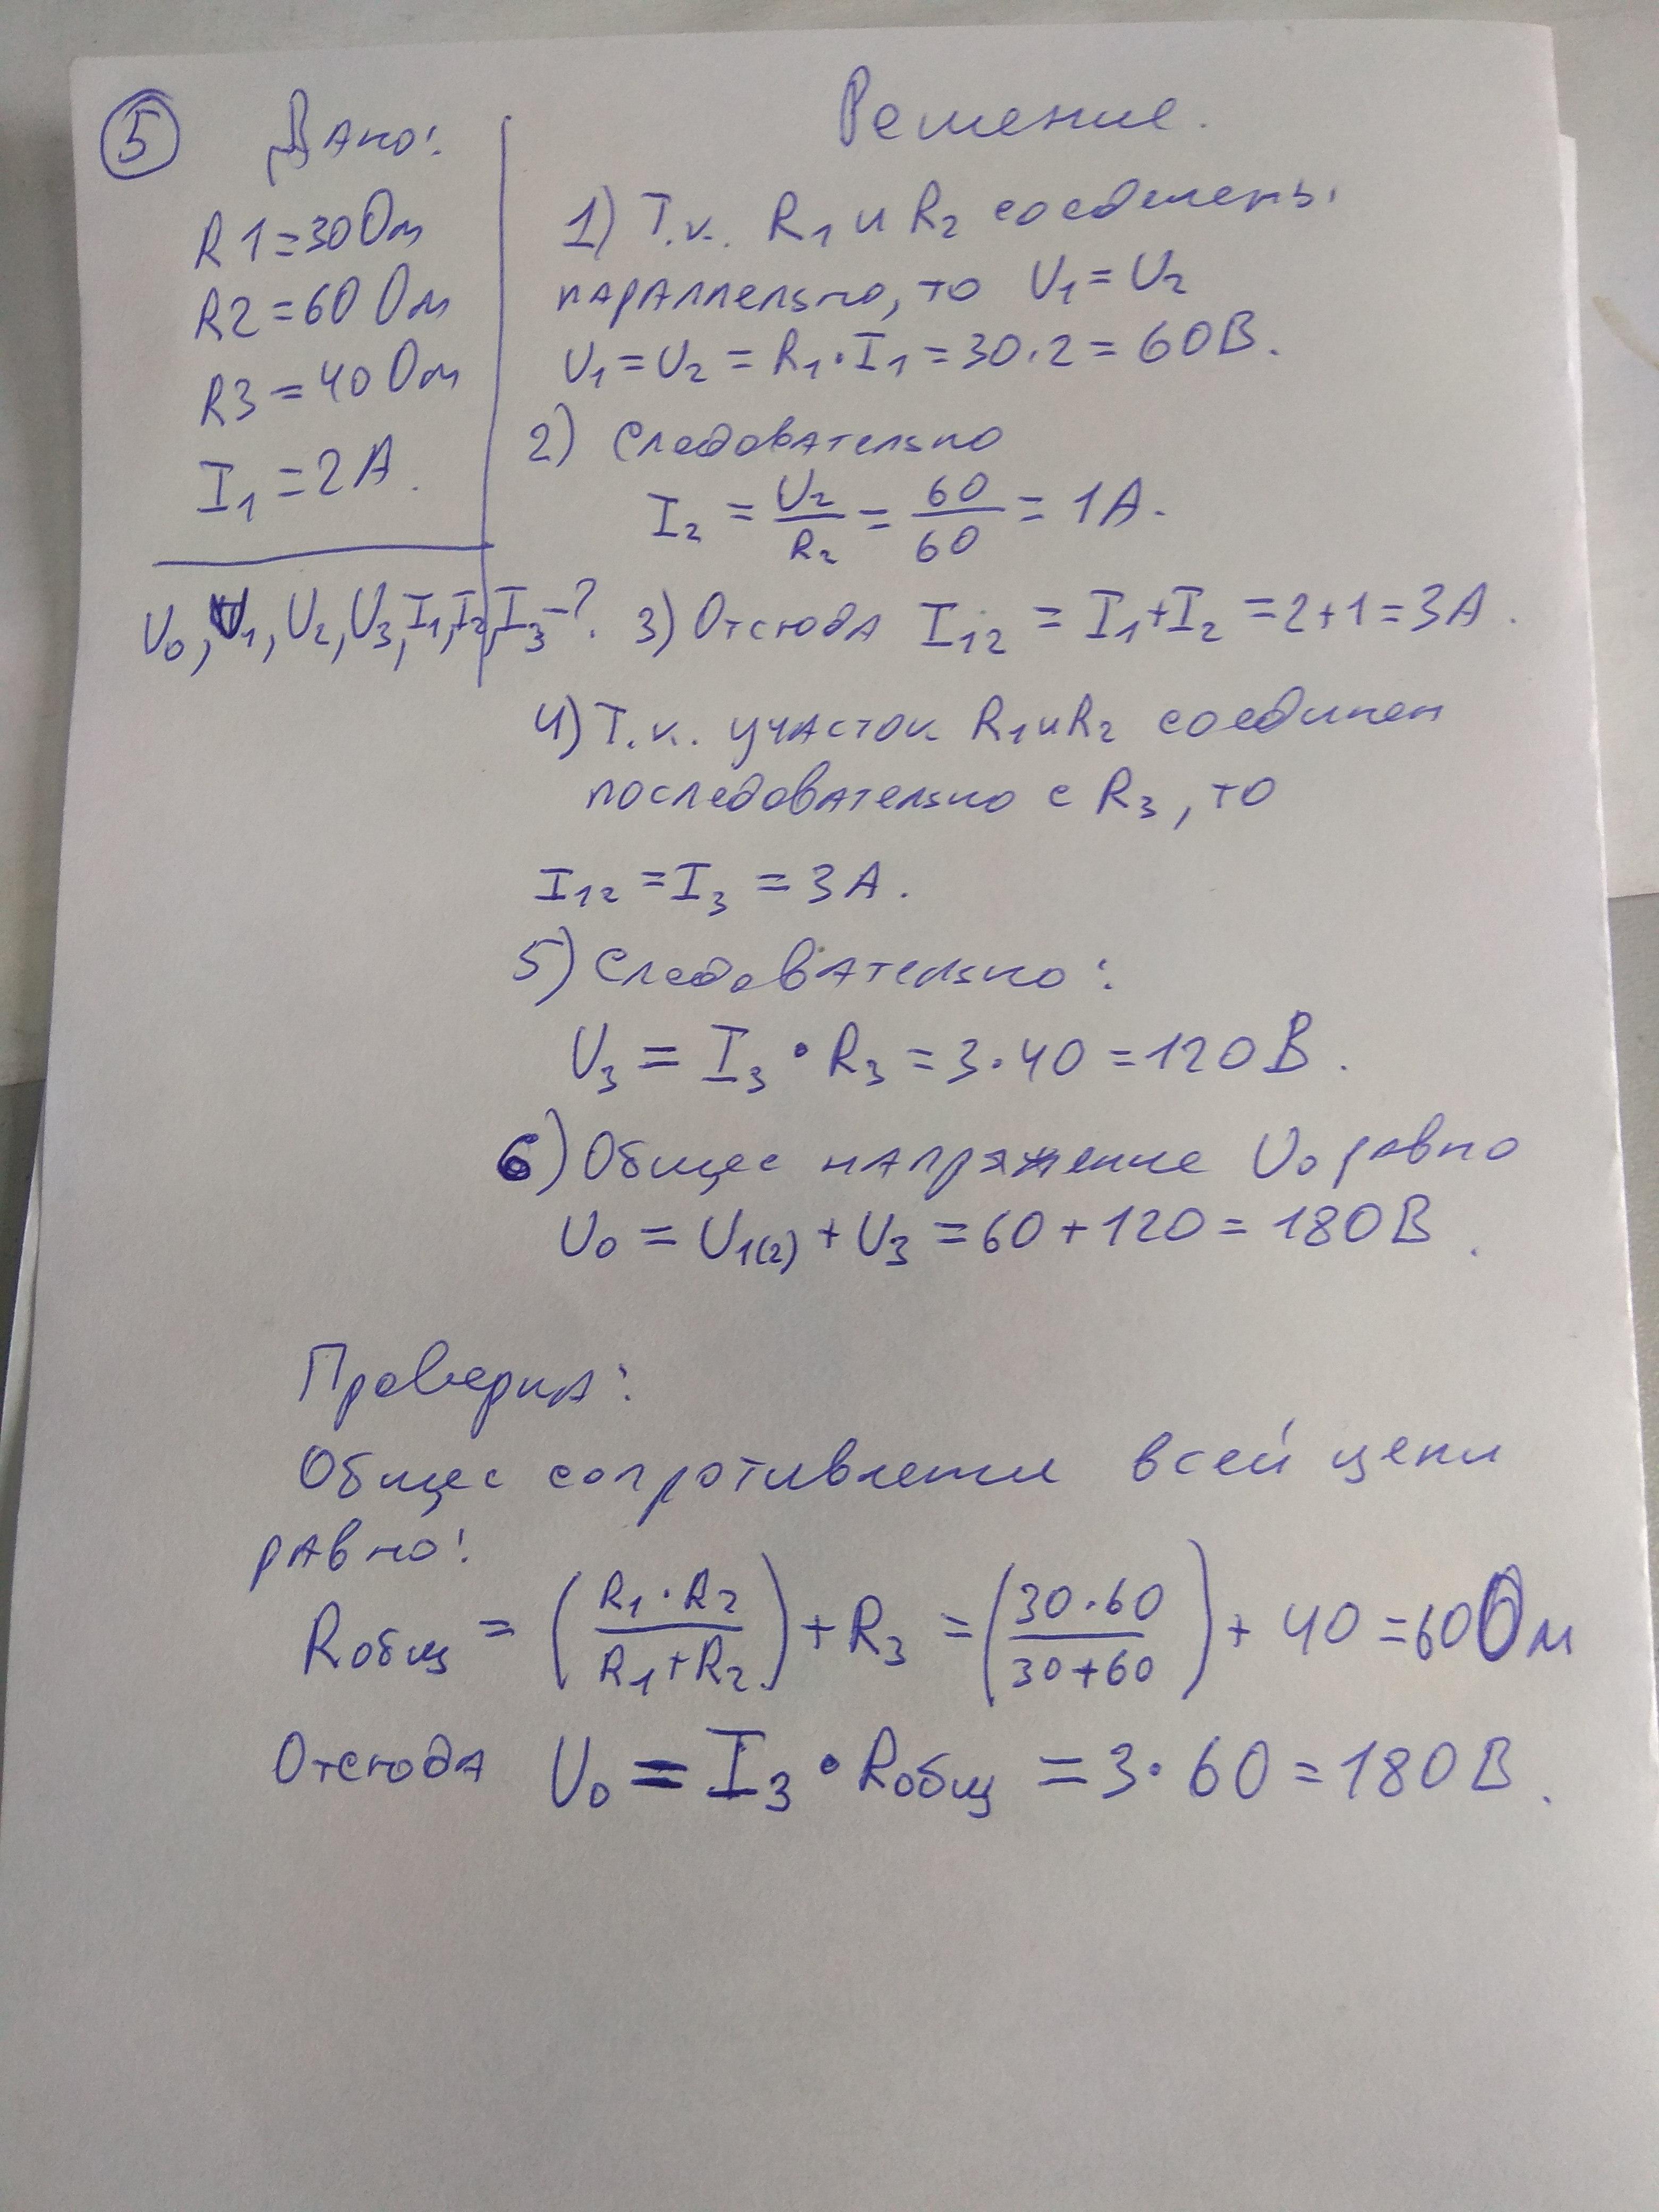 5 Дано:
R1=30 Ом
R2=60 Ом
R3=40 Ом
I₁=2А.
U₀, U₁, U₂, U₃, I₁, I₂, I₃-?
Решение.
1) Т.к. R₁ и R₂ соединены
параллельно, то U₁=U₂
U₁=U₂=R₁·I₁=30·2=60В.
2) Следовательно
I₂ = U₂/R₂ = 60/60 = 1А.
3) Отсюда I₁₂ = I₁+I₂ =2+1=3А.
4) Т.к. участок R₁ и R₂ соединен
последовательно с R₃, то
I₁₂ =I₃ =3А.
5) Следовательно:
U₃ = I₃·R₃=3·40=120В.
6) Общее напряжение U₀ равно
U₀ = U₁₍₂₎ + U₃ =60+120=180В.
Проверка:
Общее сопротивление всей цепи
равно:
Rобщ = (R₁·R₂/R₁+R₂) + R₃ = (30·60/30+60) + 40 =60Ом
Отсюда U₀ = I₃·Rобщ =3·60=180В.